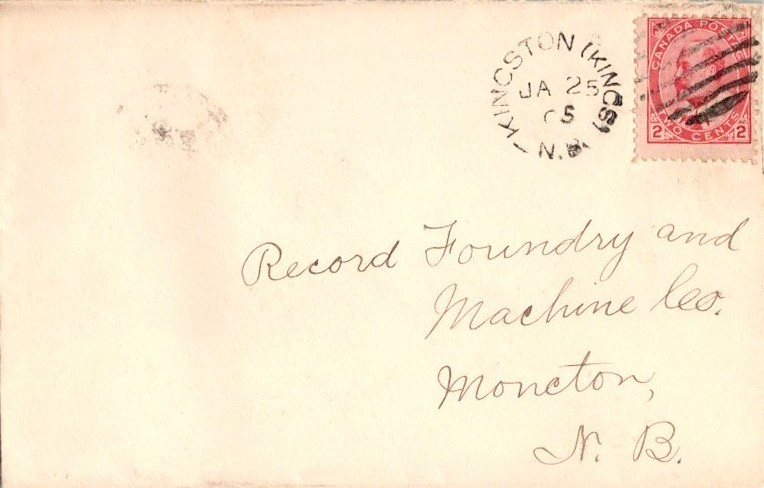 KINGSTON (KINGS)
JA 25
05
N.B
CANADA POSTAGE
2 TWO CENTS 2
Record Foundry and
Machine Co.
Moncton,
N. B.